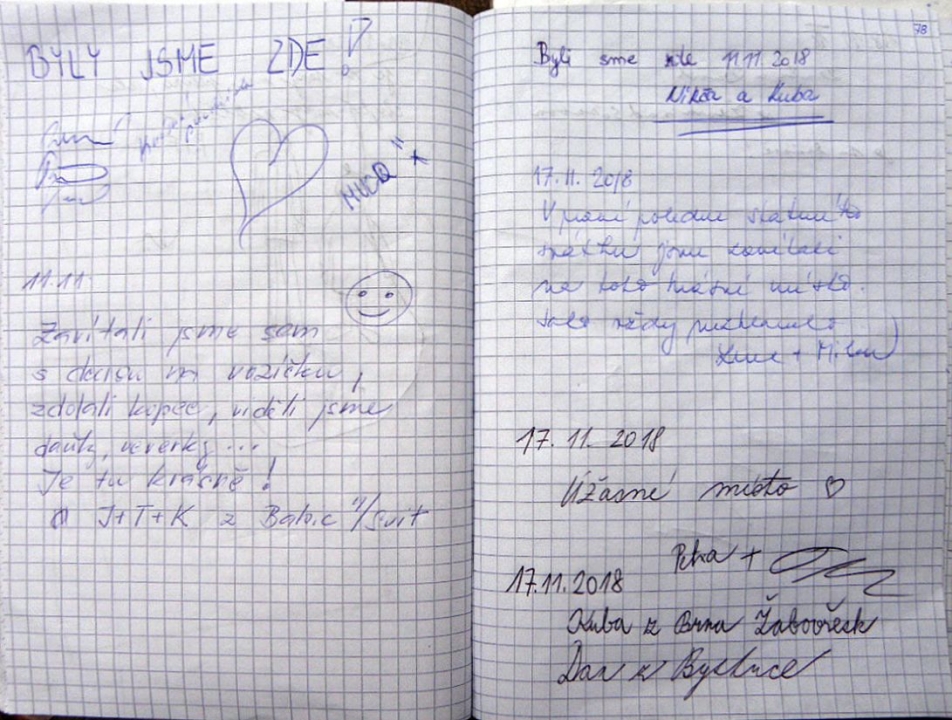 BYLY JSME ZDE!
11.11.
Zavítali jsme sam
s dcerou na vozíčku,
zdolali kopec, viděli jsme
daňky, veverky...
Je tu krásně!
J+T+K z Babic n/Svit
78
Byli sme zde 11.11.2018
Nikča a Kuba
17.11.2018
V první poledne státního
svátku jsme zavítali
na toto krásné místo.
vždy
+ Milan
17.11.2018
Úžasné místo ♡
Petra +
17.11.2018
Kuba z Brna Žabovřesk
Dan z Bystrce